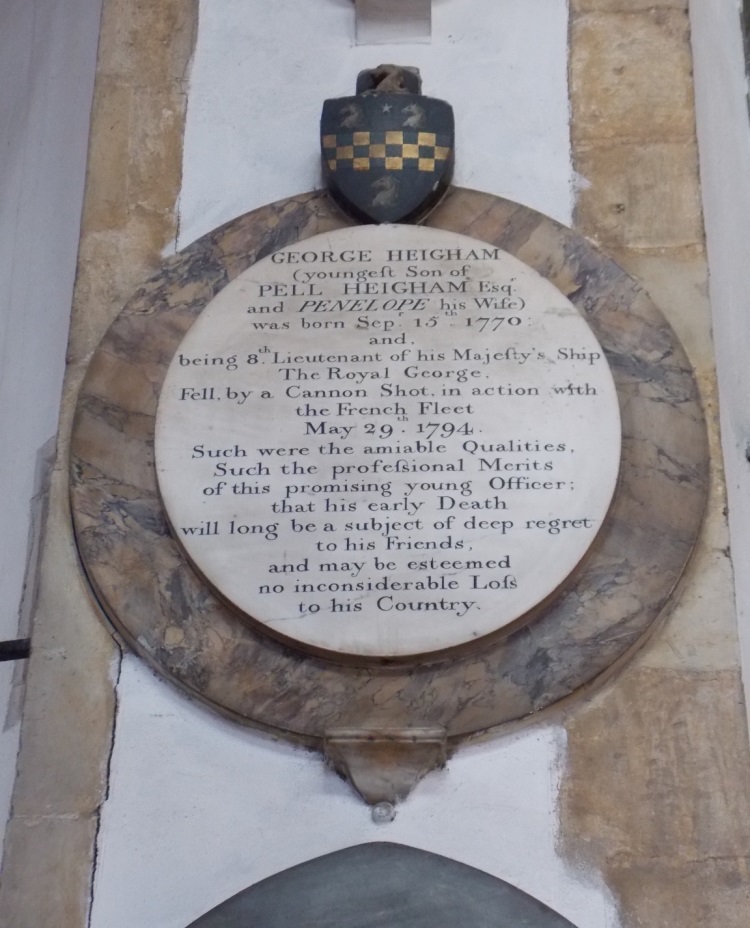 GEORGE HEIGHAM
(youngeſt Son of
PELL HEIGHAM Esqr.
and PENELOPE his Wife)
was born Sepr. 15th. 1770:
and,
being 8th. Lieutenant of his Majeſty's Ship
The Royal George.
Fell, by a Cannon Shot, in action with
the French Fleet
May 29th. 1794.
Such were the amiable Qualities,
Such the profeſsional Merits
of this promising young Officer;
that his early Death
will long be a subject of deep regret
to his Friends,
and may be esteemed
no inconsiderable Loſs
to his Country.